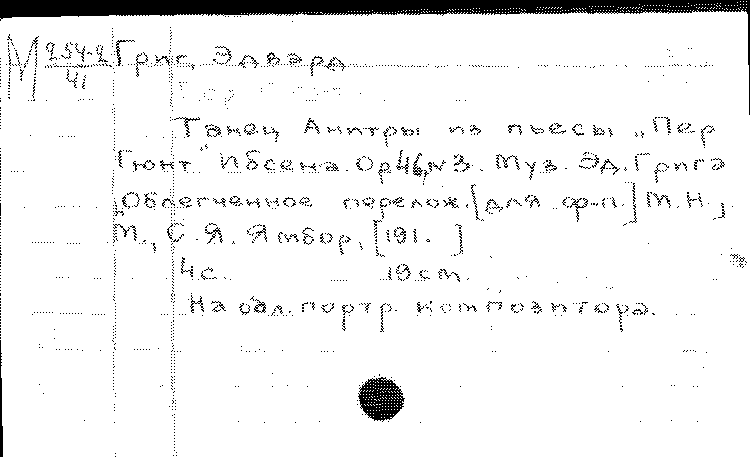 М 254-2
41
Григ, Эдвард
Танец Анитры из пьесы „Пер
Гюнт" Ибсена. Op 46, N3. Муз. Эд. Грига
„Облегченное перелож. [для ф-п.] М.Н.,
М., С. Я. Ямбор, [191. ]
4 с. 19 см.
На обл. портр. композитора.